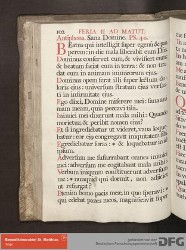 102 FERIA II AD MATUT.
Antiphona. Sana Domine. PS. 40.
BEatus qui intelligit super egenum & pauperem: in die mala liberabit eum Dominus.
Dominus conservet eum, & vivificet eum, & beatum faciat eum in terra: & non tradat eum in animam inimicorum ejus.
Dominus opem ferat illi super lectum doloris ejus: universum stratum ejus versasti in infirmitate ejus.
Ego dixi, Domine miserere mei: sana animam meam, quia peccavi tibi.
Inimici mei dixerunt mala mihi: Quando morietur, & peribit nomen ejus?
Et si ingrediebatur ut videret, vana loquebatur: cor ejus congregavit iniquitatem sibi.
Egrediebatur foras: & loquebatur in idipsum.
Adversum me susurrabant omnes inimici mei: adversum me cogitabant mala mihi.
Verbum iniquum constituerunt adversum me: numquid qui dormit, non adjiciet ut resurgat?
Etenim homo pacis meæ, in quo speravi: qui edebat panes meos, magnificavit super
DFG